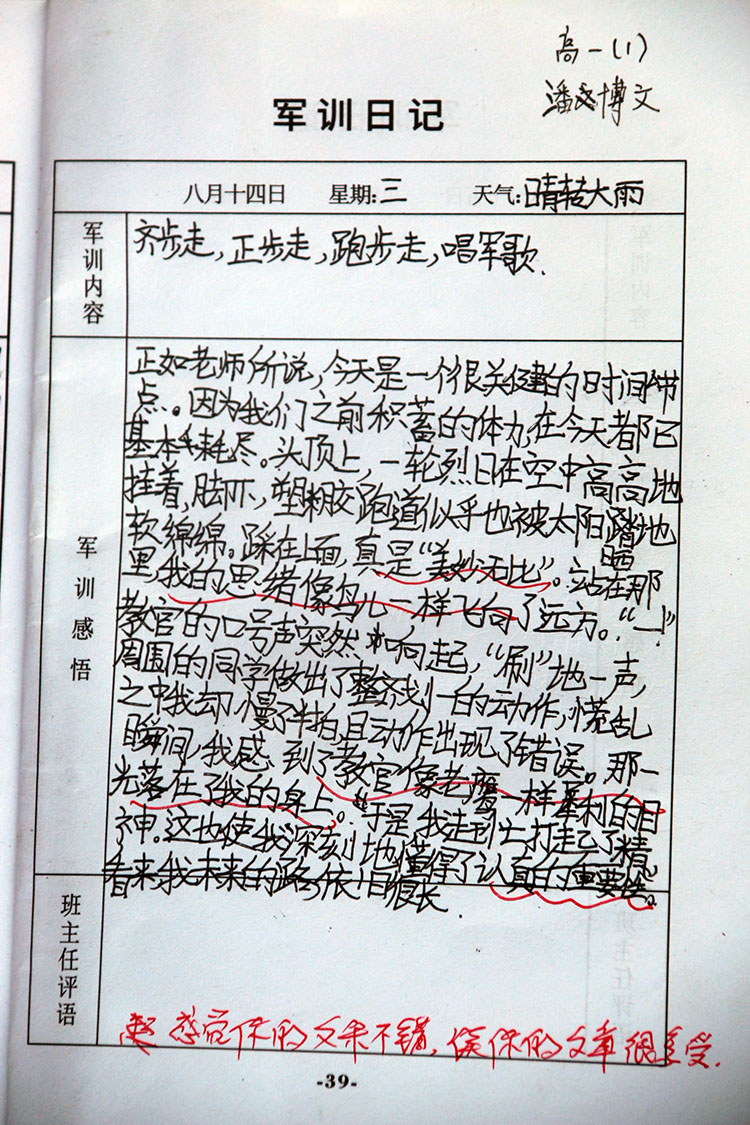 高一(1)
潘文博文
军训日记
八月十四日 星期:三 天气:晴转大雨
军训内容
齐步走,正步走,跑步走,唱军歌.
军训感悟
正如老师所说,今天是一个很关健的时间节
点。因为我们之前积蓄的体力,在今天都已
基本耗尽。头顶上,一轮烈日在空中高高地
挂着,脚下,塑胶跑道似乎也被太阳晒地
软绵绵。踩在上面,真是“美妙无比”。站在那
里,我的思绪像鸟儿一样飞向了远方。“一!”
教官的口号声突然响起,“刷”地一声,
周围的同学做出了整齐划一的动作,慌乱
之中我却慢了半拍且动作出现了错误。那一
瞬间,我感到了教官像老鹰一样犀利的目
光落在了我的身上。于是,我打起了精
神。这也使我深刻地懂得了认真的重要性。
看来,我未来的路依旧很长.
班主任评语
感觉你的文采不错,读你的文章很享受.
-39-